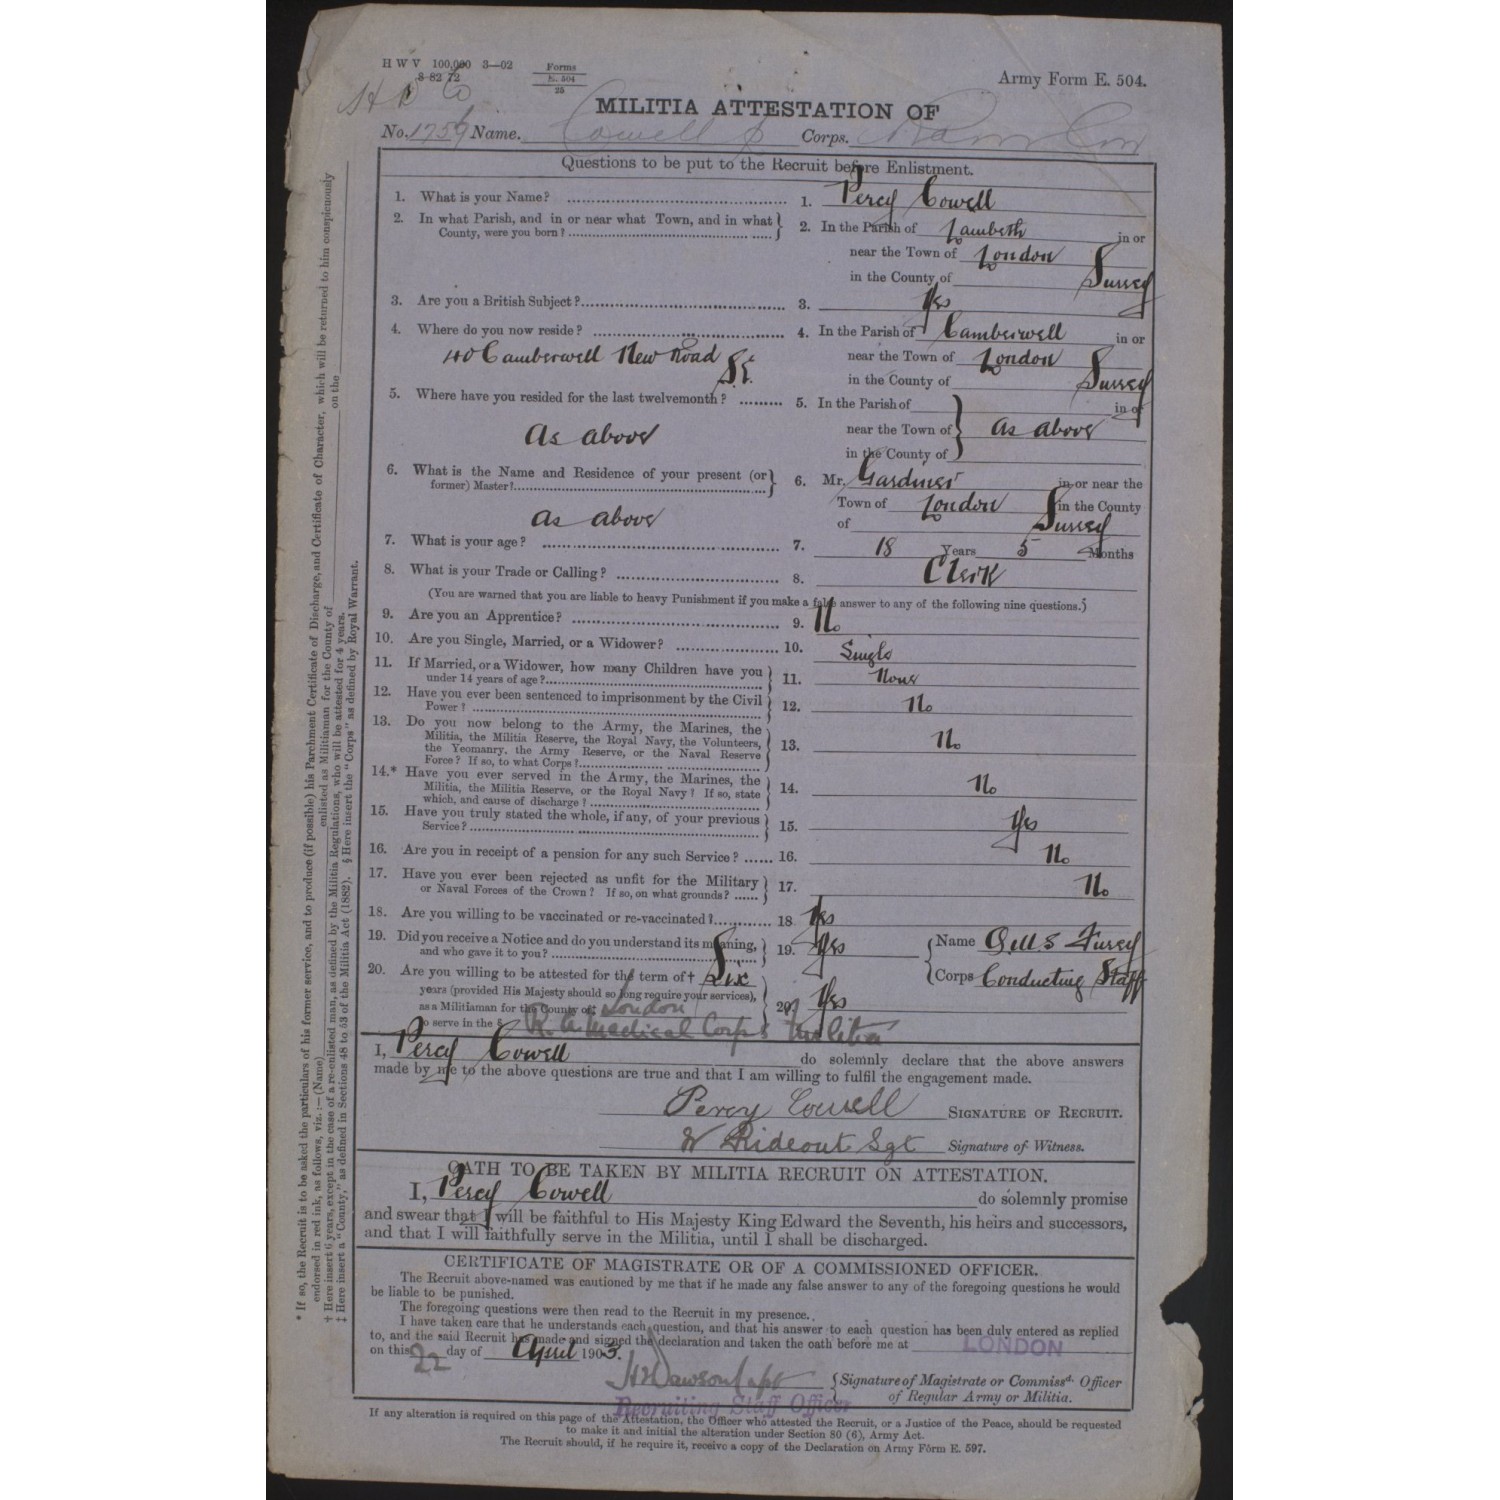 H W V 100,000 3—02 Forms
8 82 72 E. 504
25
Army Form E. 504.
MILITIA ATTESTATION OF
No. Name. Cowell P Corps.
Questions to be put to the Recruit before Enlistment.
1. What is your Name? 1. Percy Cowell
2. In what Parish, and in or near what Town, and in what County, were you born? 2. In the Parish of Lambeth in or
near the Town of London
in the County of Surrey
3. Are you a British Subject? 3. Yes
4. Where do you now reside? 4. In the Parish of Camberwell in or
40 Camberwell New Road S.E. near the Town of London
in the County of Surrey
5. Where have you resided for the last twelvemonth? 5. In the Parish of in or
As above near the Town of As above
in the County of
6. What is the Name and Residence of your present (or former) Master? 6. Mr. Gardiner in or near the
Town of London in the County
As above of Surrey
7. What is your age? 7. 18 Years 5 Months
8. What is your Trade or Calling? 8. Clerk
(You are warned that you are liable to heavy Punishment if you make a false answer to any of the following nine questions.)
9. Are you an Apprentice? 9. No
10. Are you Single, Married, or a Widower? 10. Single
11. If Married, or a Widower, how many Children have you
under 14 years of age? 11. None
12. Have you ever been sentenced to imprisonment by the Civil
Power? 12. No
13. Do you now belong to the Army, the Marines, the
Militia, the Militia Reserve, the Royal Navy, the Volunteers,
the Yeomanry, the Army Reserve, or the Naval Reserve
Force? If so, to what Corps? 13. No
14.* Have you ever served in the Army, the Marines, the
Militia, the Militia Reserve, or the Royal Navy? If so, state
which, and cause of discharge? 14. No
15. Have you truly stated the whole, if any, of your previous
Service? 15. Yes
16. Are you in receipt of a pension for any such Service? 16. No
17. Have you ever been rejected as unfit for the Military
or Naval Forces of the Crown? If so, on what grounds? 17. No
18. Are you willing to be vaccinated or re-vaccinated? 18 Yes
19. Did you receive a Notice and do you understand its meaning,
and who gave it to you? 19. Yes Name
Corps Conducting Staff
20. Are you willing to be attested for the term of † Six
years (provided His Majesty should so long require your services),
as a Militiaman for the County of ‡ London 20. Yes
to serve in the § R. A. Medical Corps Militia
I, Percy Cowell do solemnly declare that the above answers
made by me to the above questions are true and that I am willing to fulfil the engagement made.
Percy Cowell SIGNATURE OF RECRUIT.
W Rideout Sgt Signature of Witness.
OATH TO BE TAKEN BY MILITIA RECRUIT ON ATTESTATION.
I, Percy Cowell do solemnly promise
and swear that I will be faithful to His Majesty King Edward the Seventh, his heirs and successors,
and that I will faithfully serve in the Militia, until I shall be discharged.
CERTIFICATE OF MAGISTRATE OR OF A COMMISSIONED OFFICER.
The Recruit above-named was cautioned by me that if he made any false answer to any of the foregoing questions he would
be liable to be punished.
The foregoing questions were then read to the Recruit in my presence.
I have taken care that he understands each question, and that his answer to each question has been duly entered as replied
to, and the said Recruit has made and signed the declaration and taken the oath before me at LONDON
on this 22 day of April 1903.
Dawson Capt Signature of Magistrate or Commissd. Officer
of Regular Army or Militia.
Recruiting Staff Officer
If any alteration is required on this page of the Attestation, the Officer who attested the Recruit, or a Justice of the Peace, should be requested
to make it and initial the alteration under Section 80 (6), Army Act.
The Recruit should, if he require it, receive a copy of the Declaration on Army Form E. 597.
* If so, the Recruit is to be asked the particulars of his former service, and to produce (if possible) his Parchment Certificate of Discharge, and Certificate of Character, which will be returned to him conspicuously
endorsed in red ink, as follows, viz.:—(Name) enlisted as Militiaman for the County of on the
† Here insert 6 years, except in the case of a re-enlisted man, as defined by the Militia Regulations, who will be attested for 4 years.
‡ Here insert a "County," as defined in Sections 48 to 53 of the Militia Act (1882). § Here insert the "Corps" as defined by Royal Warrant.